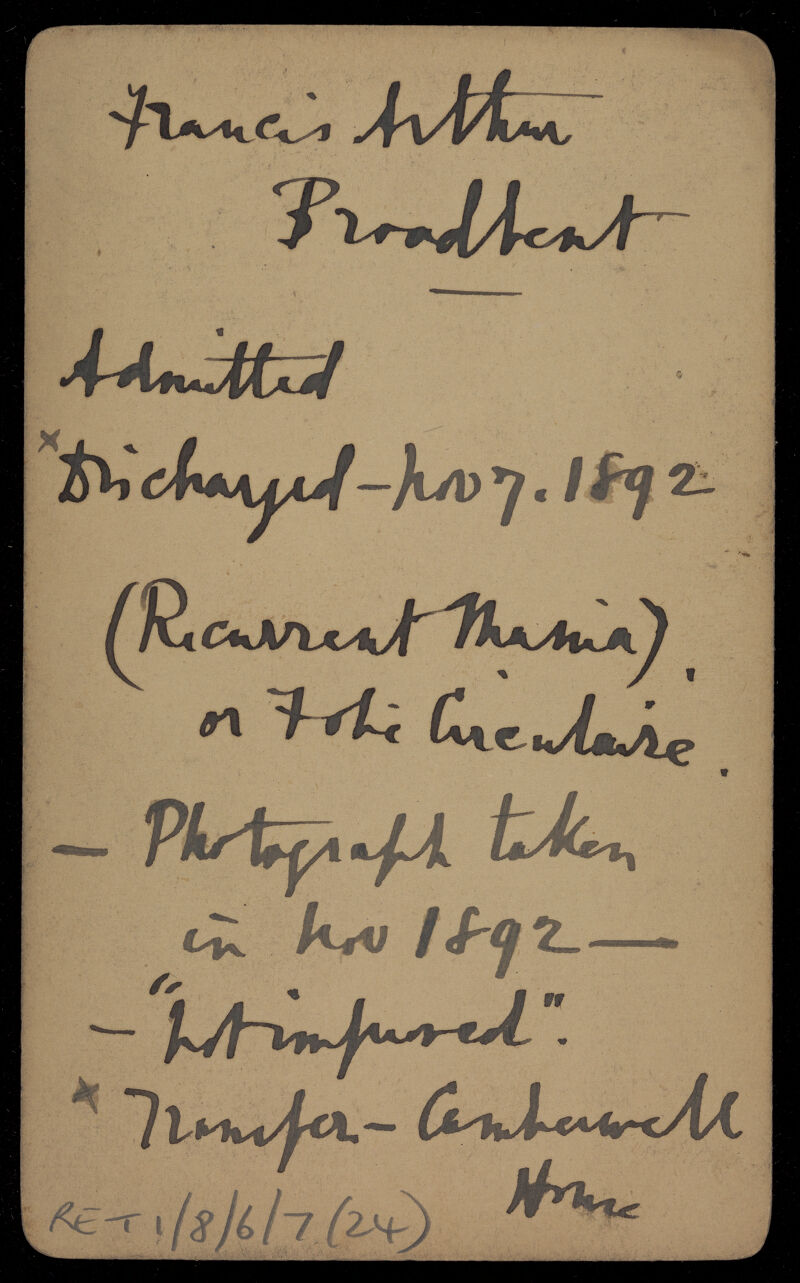 Francis Arthur
Broadbent
Admitted
x Discharged - Nov 7. 1892
(Recurrent Mania).
or Folie Circulaire.
— Photograph taken
in Nov 1892 —
— "Not improved".
x Transfer - Camberwell
House
RET 1/8/6/7 (24)